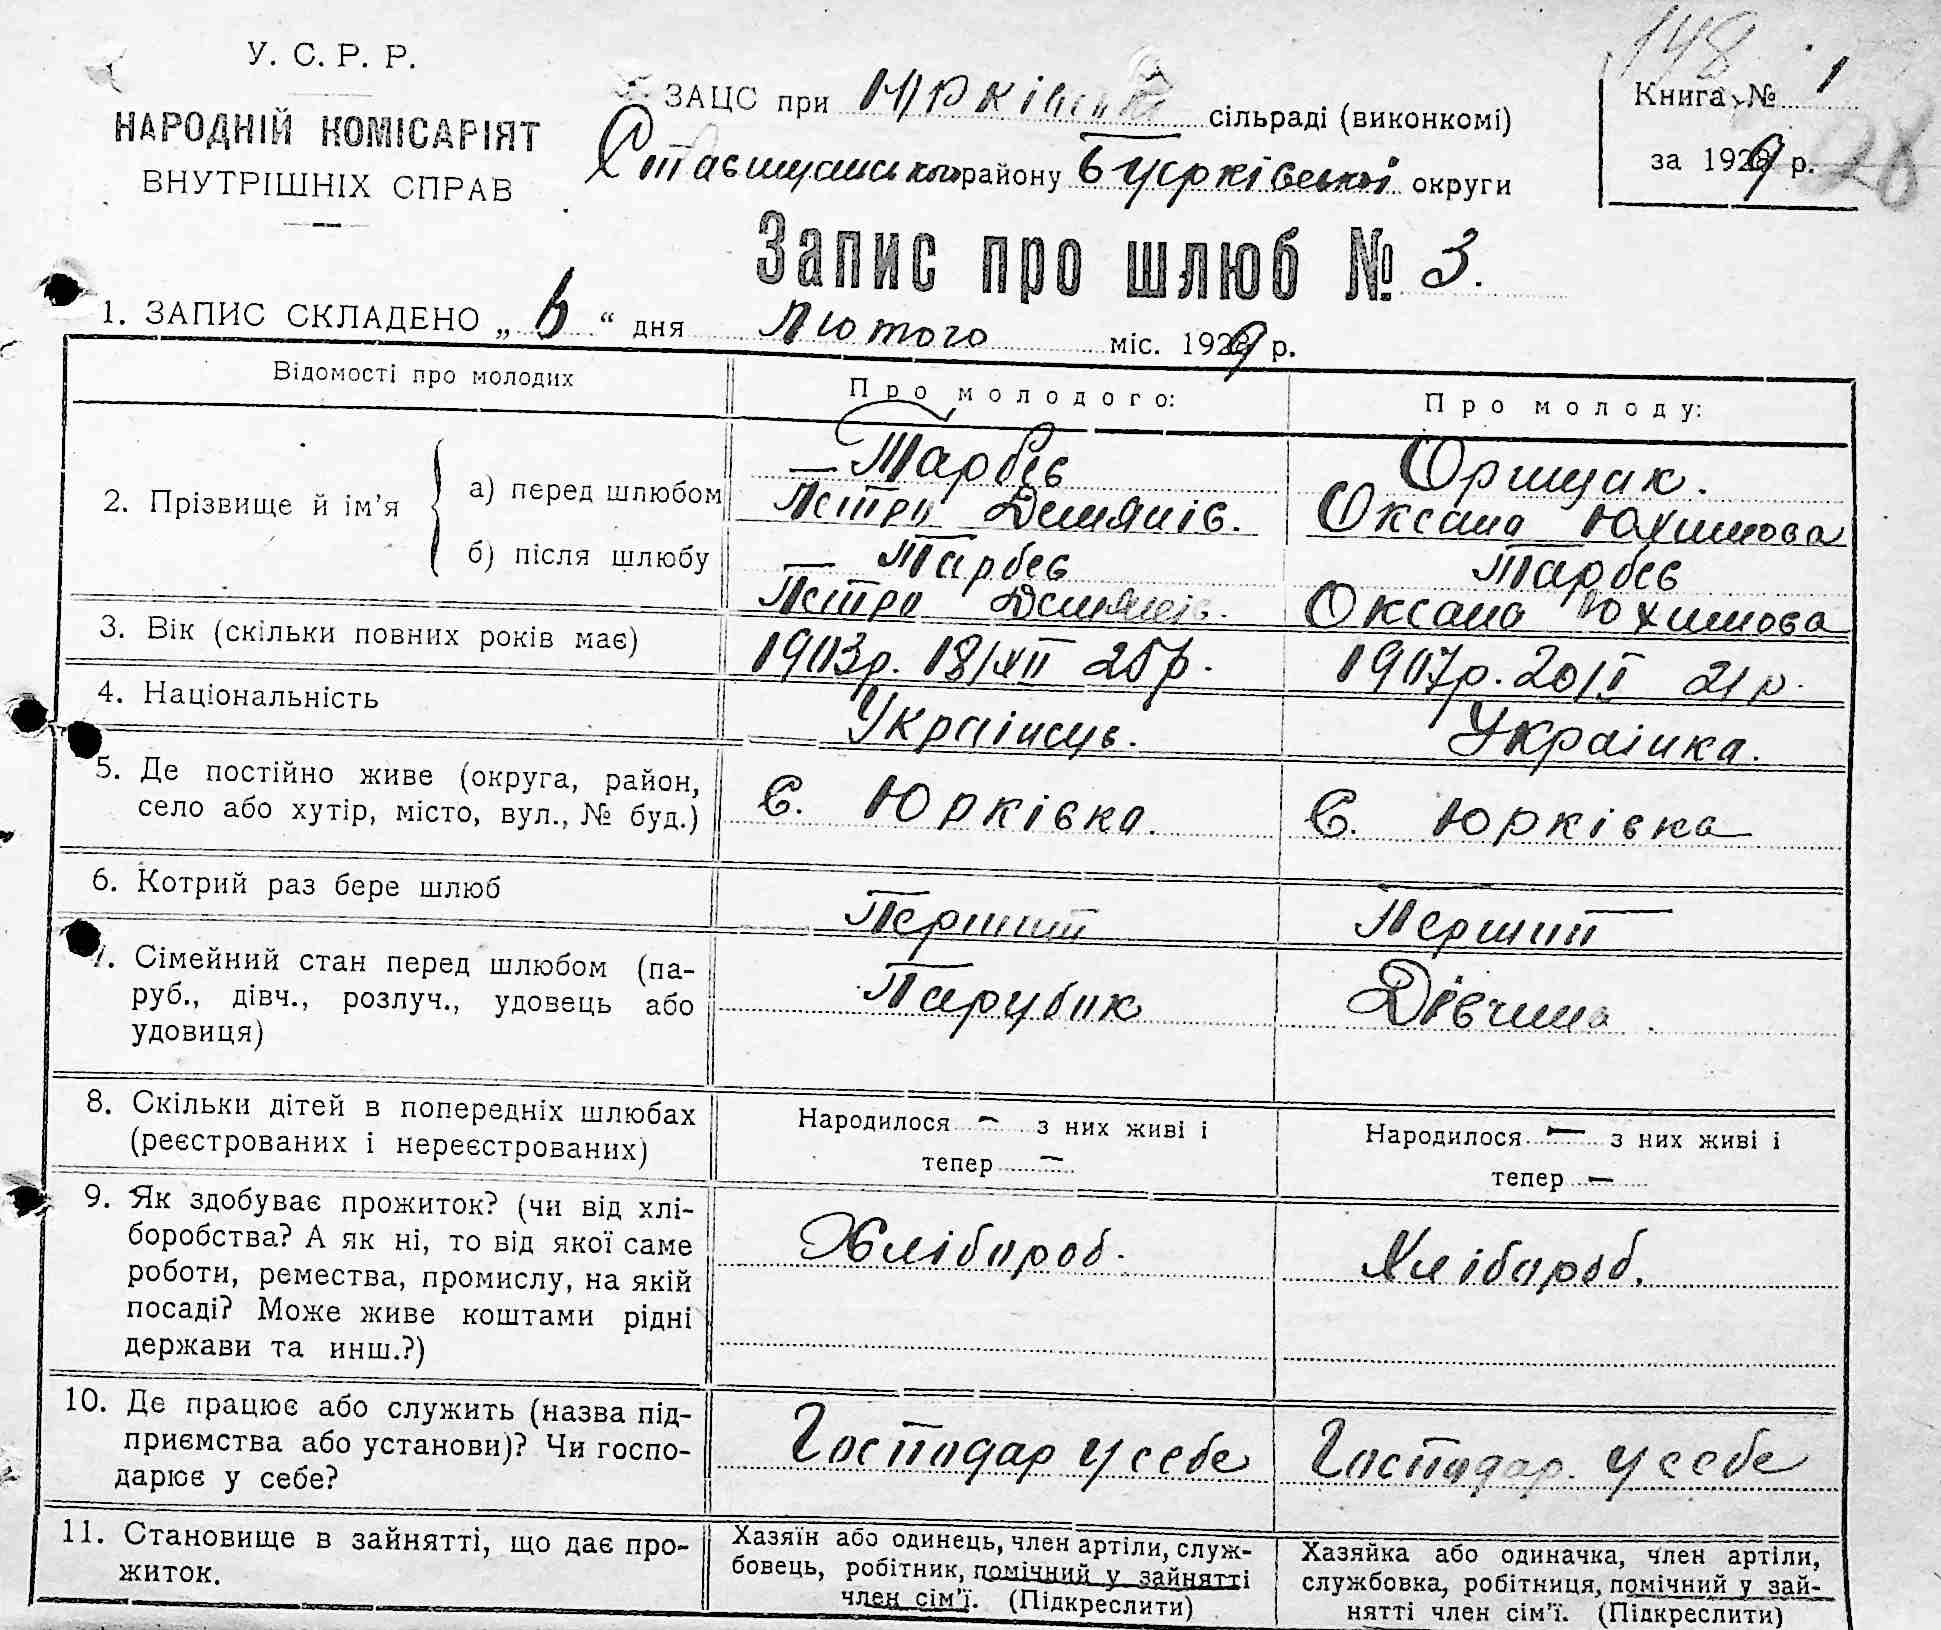 148
У. С. Р. Р.
НАРОДНІЙ КОМІСАРІЯТ
ВНУТРІШНІХ СПРАВ
ЗАЦС при Юрківській сільраді (виконкомі)
району округи
Книга № 1
за 1929 р.
28
Запис про шлюб № 3.
1. ЗАПИС СКЛАДЕНО „6“ дня Лютого міс. 1929 р.
Відомості про молодих
Про молодого:
Про молоду:
2. Прізвище й ім’я
а) перед шлюбом
Тарбєв
Петро Демянів.
Орищак.
Оксана Юхимова
б) після шлюбу
Тарбєв
Петро Демянів.
Тарбєв
Оксана Юхимова
3. Вік (скільки повних років має)
1903р. 18/XII 25р.
1907р. 20/I 21р.
4. Національність
Українець.
Українка.
5. Де постійно живе (округа, район,
село або хутір, місто, вул., № буд.)
С. Юрківка.
С. Юрківка
6. Котрий раз бере шлюб
Перший
Перший
7. Сімейний стан перед шлюбом (па-
руб., дівч., розлуч., удовець або
удовиця)
Парубок
Дівчина
8. Скільки дітей в попередніх шлюбах
(реєстрованих і нереєстрованих)
Народилося — з них живі і
тепер —
Народилося — з них живі і
тепер —
9. Як здобуває прожиток? (чи від хлі-
боробства? А як ні, то від якої саме
роботи, ремества, промислу, на якій
посаді? Може живе коштами рідні
держави та инш.?)
Хлібороб.
Хлібороб.
10. Де працює або служить (назва під-
приємства або установи)? Чи госпо-
дарює у себе?
Господар у себе
Господар. у себе
11. Становище в зайнятті, що дає про-
житок.
Хазяїн або одинець, член артіли, служ-
бовець, робітник, помічний у зайнятті
член сім’ї. (Підкреслити)
Хазяйка або одиначка, член артіли,
службовка, робітниця, помічний у зай-
нятті член сім’ї. (Підкреслити)